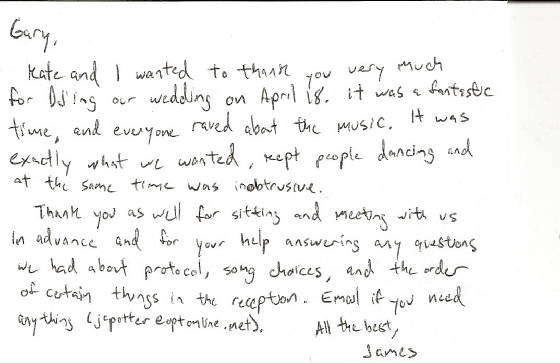 Gary,
Kate and I wanted to thank you very much
for DJ'ing our wedding on April 18. it was a fantastic
time, and everyone raved about the music. It was
exactly what we wanted, kept people dancing and
at the same time was inobtrusive.
Thank you as well for sitting and meeting with us
in advance and for your help answering any questions
we had about protocol, song choices, and the order
of certain things in the reception. Email if you need
anything (jcpotter@optonline.net).
All the best,
James